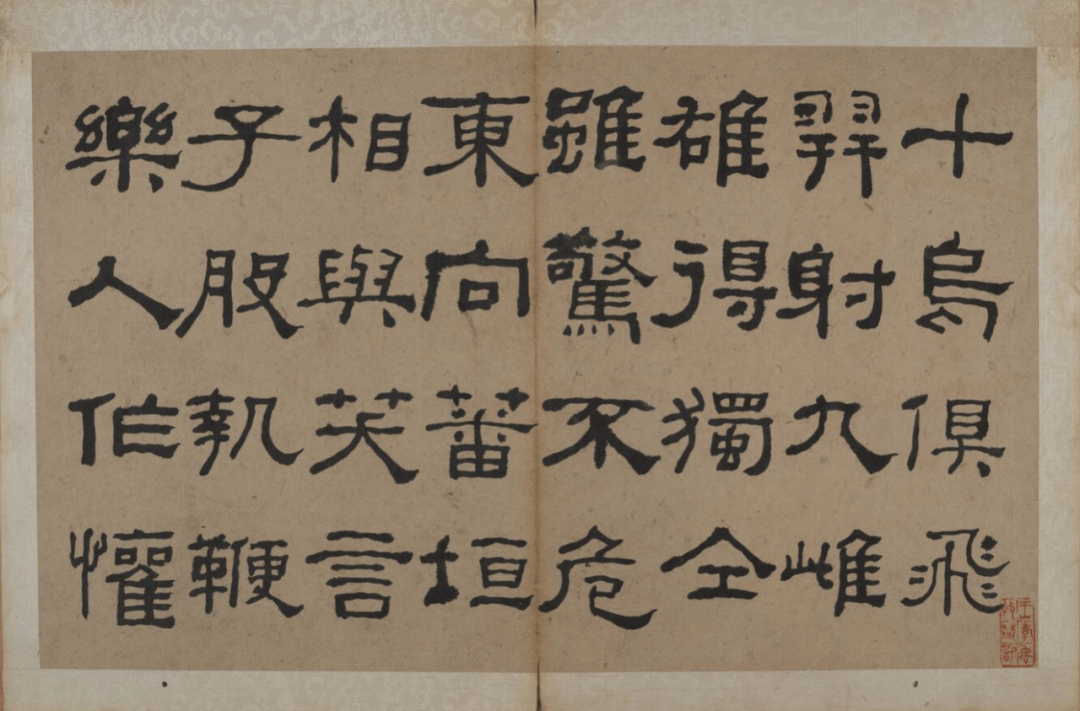 十烏俱飛
羿射九雌
雄得獨仝
雖驚不危
東向蕃垣
相與笑言
子股執鞭
樂人作懽